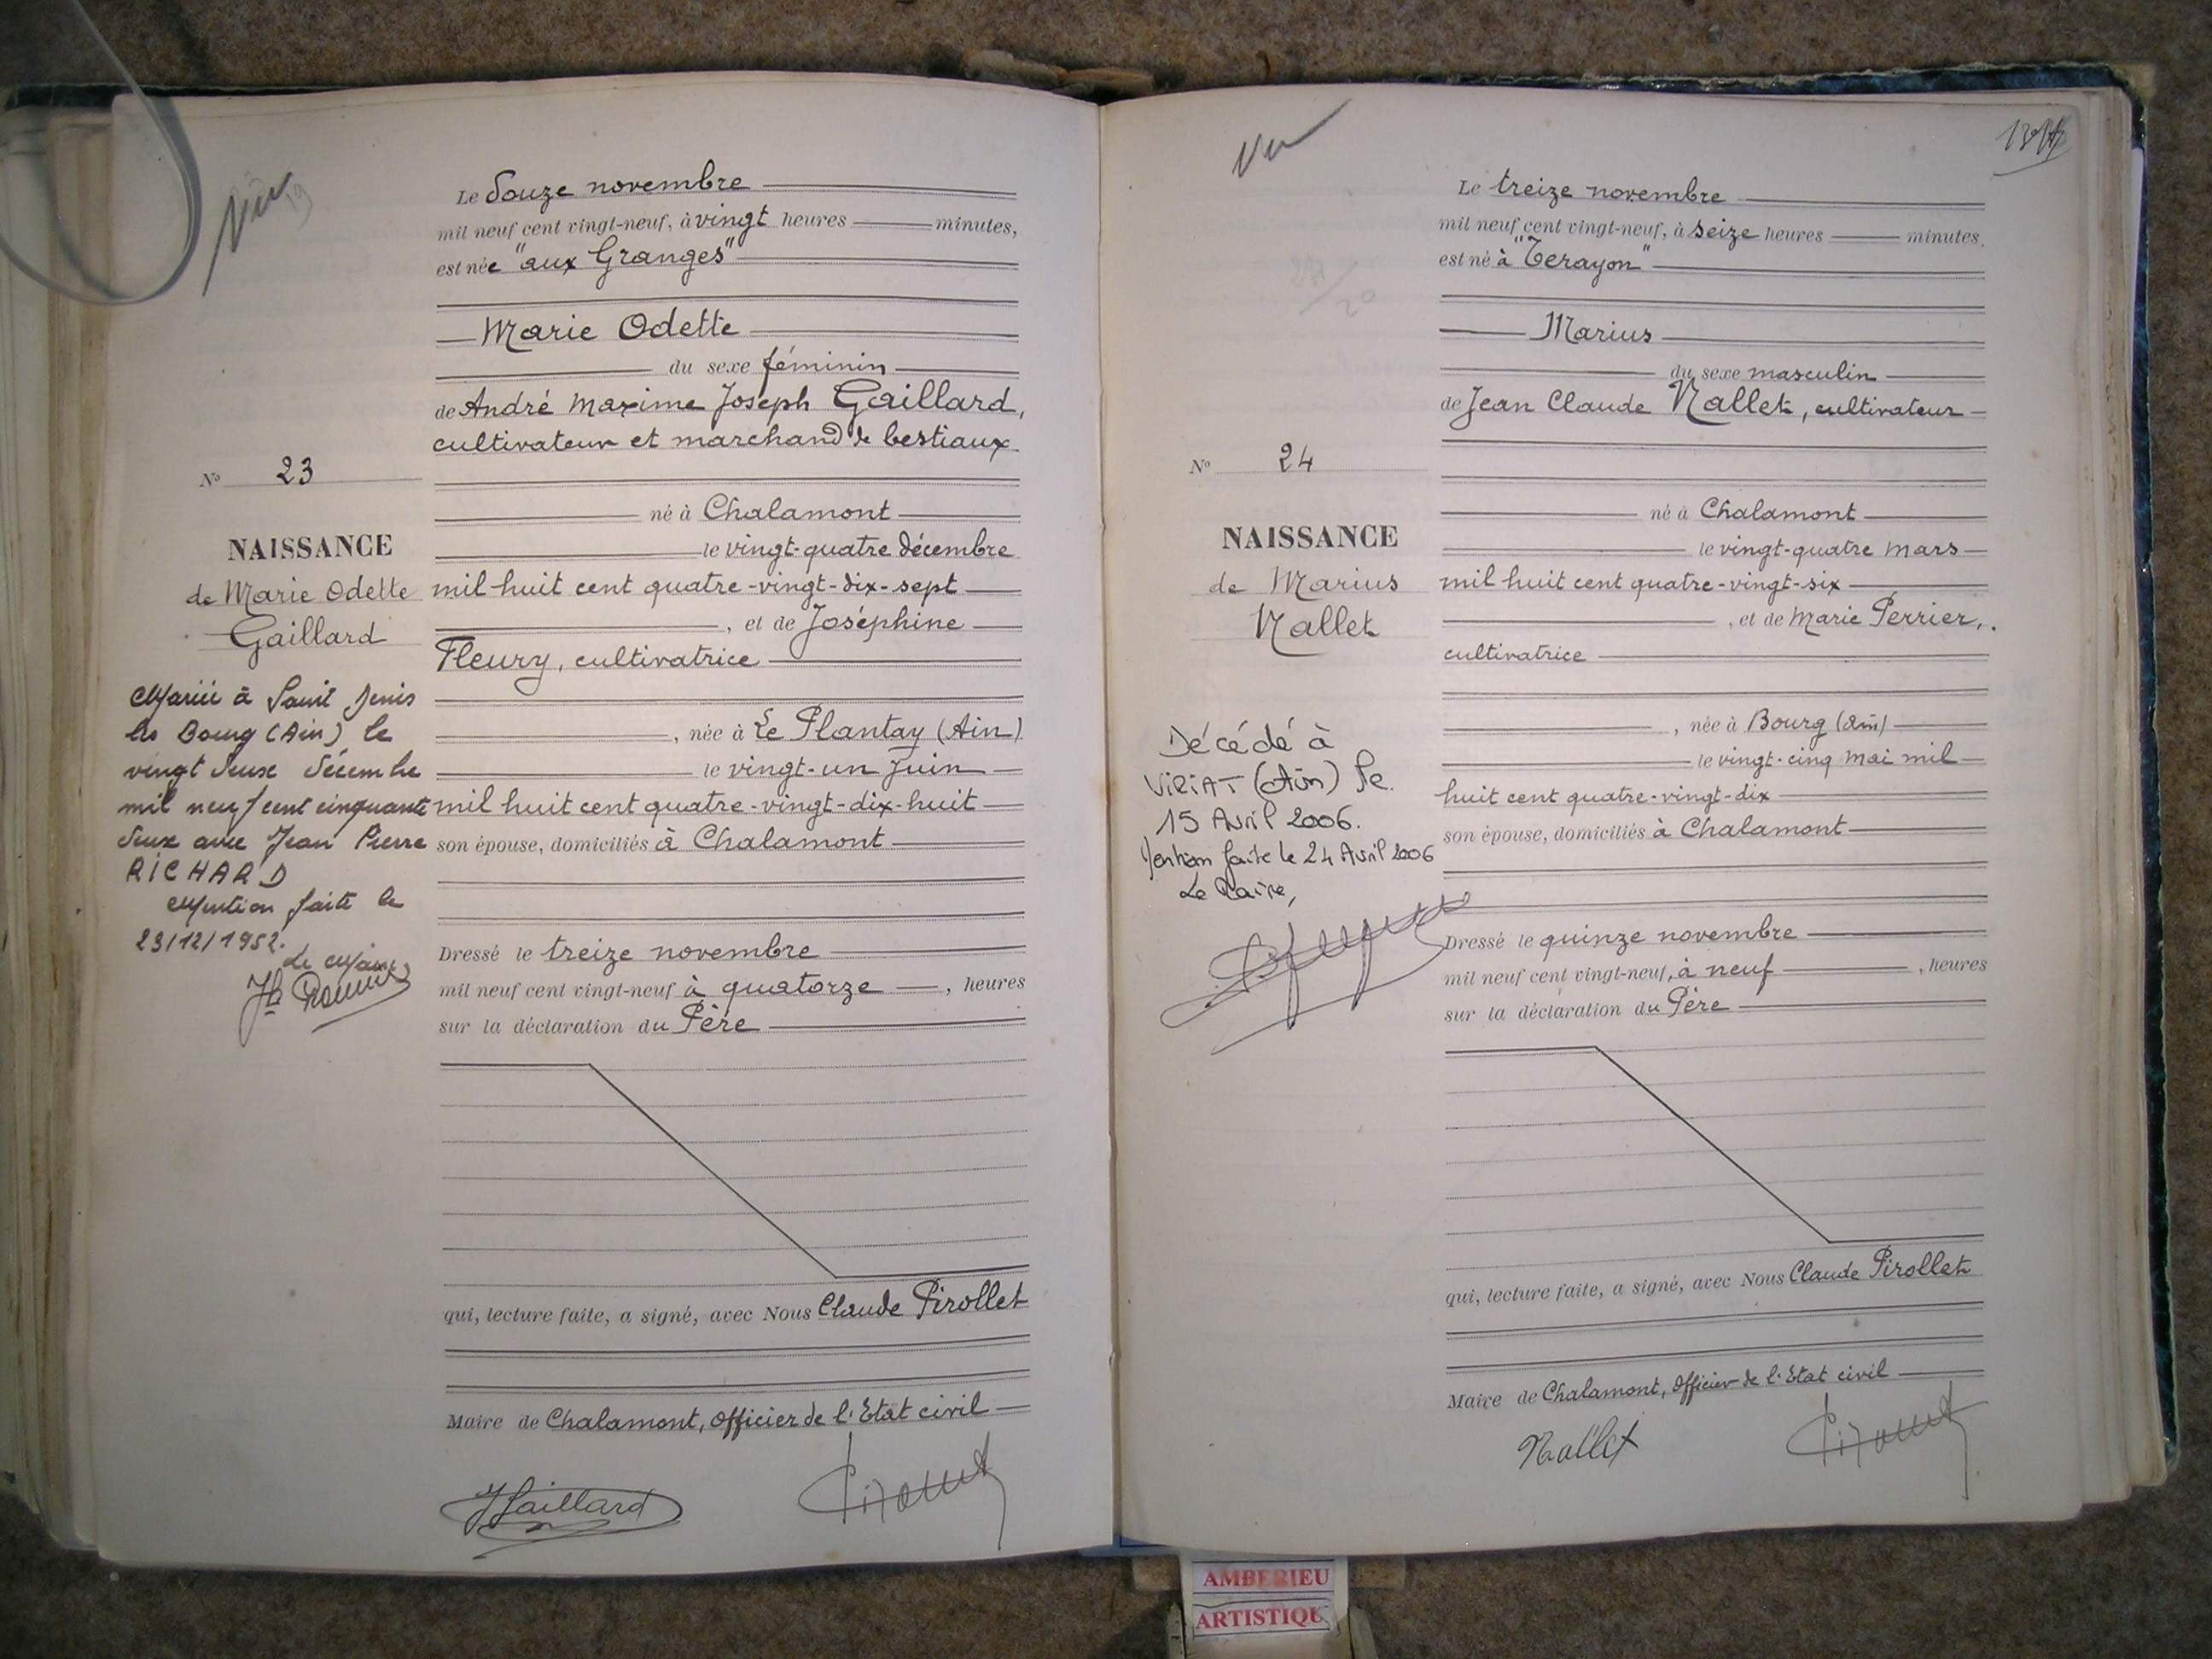 Vu
Le Douze novembre
mil neuf cent vingt-neuf, à vingt heures minutes,
est née "aux Granges"
Marie Odette
du sexe féminin
de André Maxime Joseph Gaillard,
cultivateur et marchand de bestiaux
No 23
né à Chalamont
NAISSANCE
le vingt-quatre décembre
de Marie Odette
mil huit cent quatre-vingt-dix-sept
Gaillard
, et de Joséphine
Fleury, cultivatrice
Mariée à Saint Denis
les Bourg (Ain) le
vingt deux décembre
mil neuf cent cinquante
deux avec Jean Pierre
RICHARD
Mention faite le
23/12/1952.
Le Maire
, née à Le Plantay (Ain)
le vingt-un Juin
mil huit cent quatre-vingt-dix-huit
son épouse, domiciliés à Chalamont
Dressé le treize novembre
mil neuf cent vingt-neuf à quatorze , heures
sur la déclaration du Père
qui, lecture faite, a signé, avec Nous Claude Pirollet
Maire de Chalamont, Officier de l'Etat civil
JGaillard
Pirollet
Vu
Le treize novembre
mil neuf cent vingt-neuf, à seize heures minutes,
est né à "Terayon"
Marius
du sexe masculin
de Jean Claude Nallet, cultivateur
No 24
né à Chalamont
NAISSANCE
le vingt-quatre mars
de Marius
mil huit cent quatre-vingt-six
Nallet
, et de Marie Perrier,
cultivatrice
Décédé à
VIRIAT (Ain) le
15 Avril 2006.
Mention faite le 24 Avril 2006
Le Maire,
, née à Bourg (Ain)
le vingt-cinq mai mil
huit cent quatre-vingt-dix
son épouse, domiciliés à Chalamont
Dressé le quinze novembre
mil neuf cent vingt-neuf, à neuf , heures
sur la déclaration du Père
qui, lecture faite, a signé, avec Nous Claude Pirollet
Maire de Chalamont, Officier de l'Etat civil
Nallet
Pirollet
AMBERIEU
ARTISTIQU